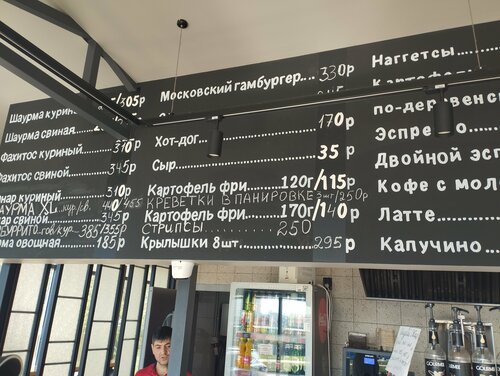 Шаурма кури
г/305р
Шаурма свиная
Фахитос куриный
310р
Фахитос свиной
345р
нар куриный
310р
АУРМА XL кур/св.
440/455
нар свиной
345р
БУРРИТО гов/кур
385/355р
рма овощная
185р
Московский гамбургер
330р
Хот-дог
170р
Сыр
35р
Картофель фри 120г/115р
КРЕВЕТКИ В ПАНИРОВКЕ 250р
Картофель фри 170г/140р
СТРИПСЫ 250
Крылышки 8шт. 295р
Наггетсы
Картофель
по-деревенс
Эспрессо
Двойной эсп
Кофе с моло
Латте
Капучино